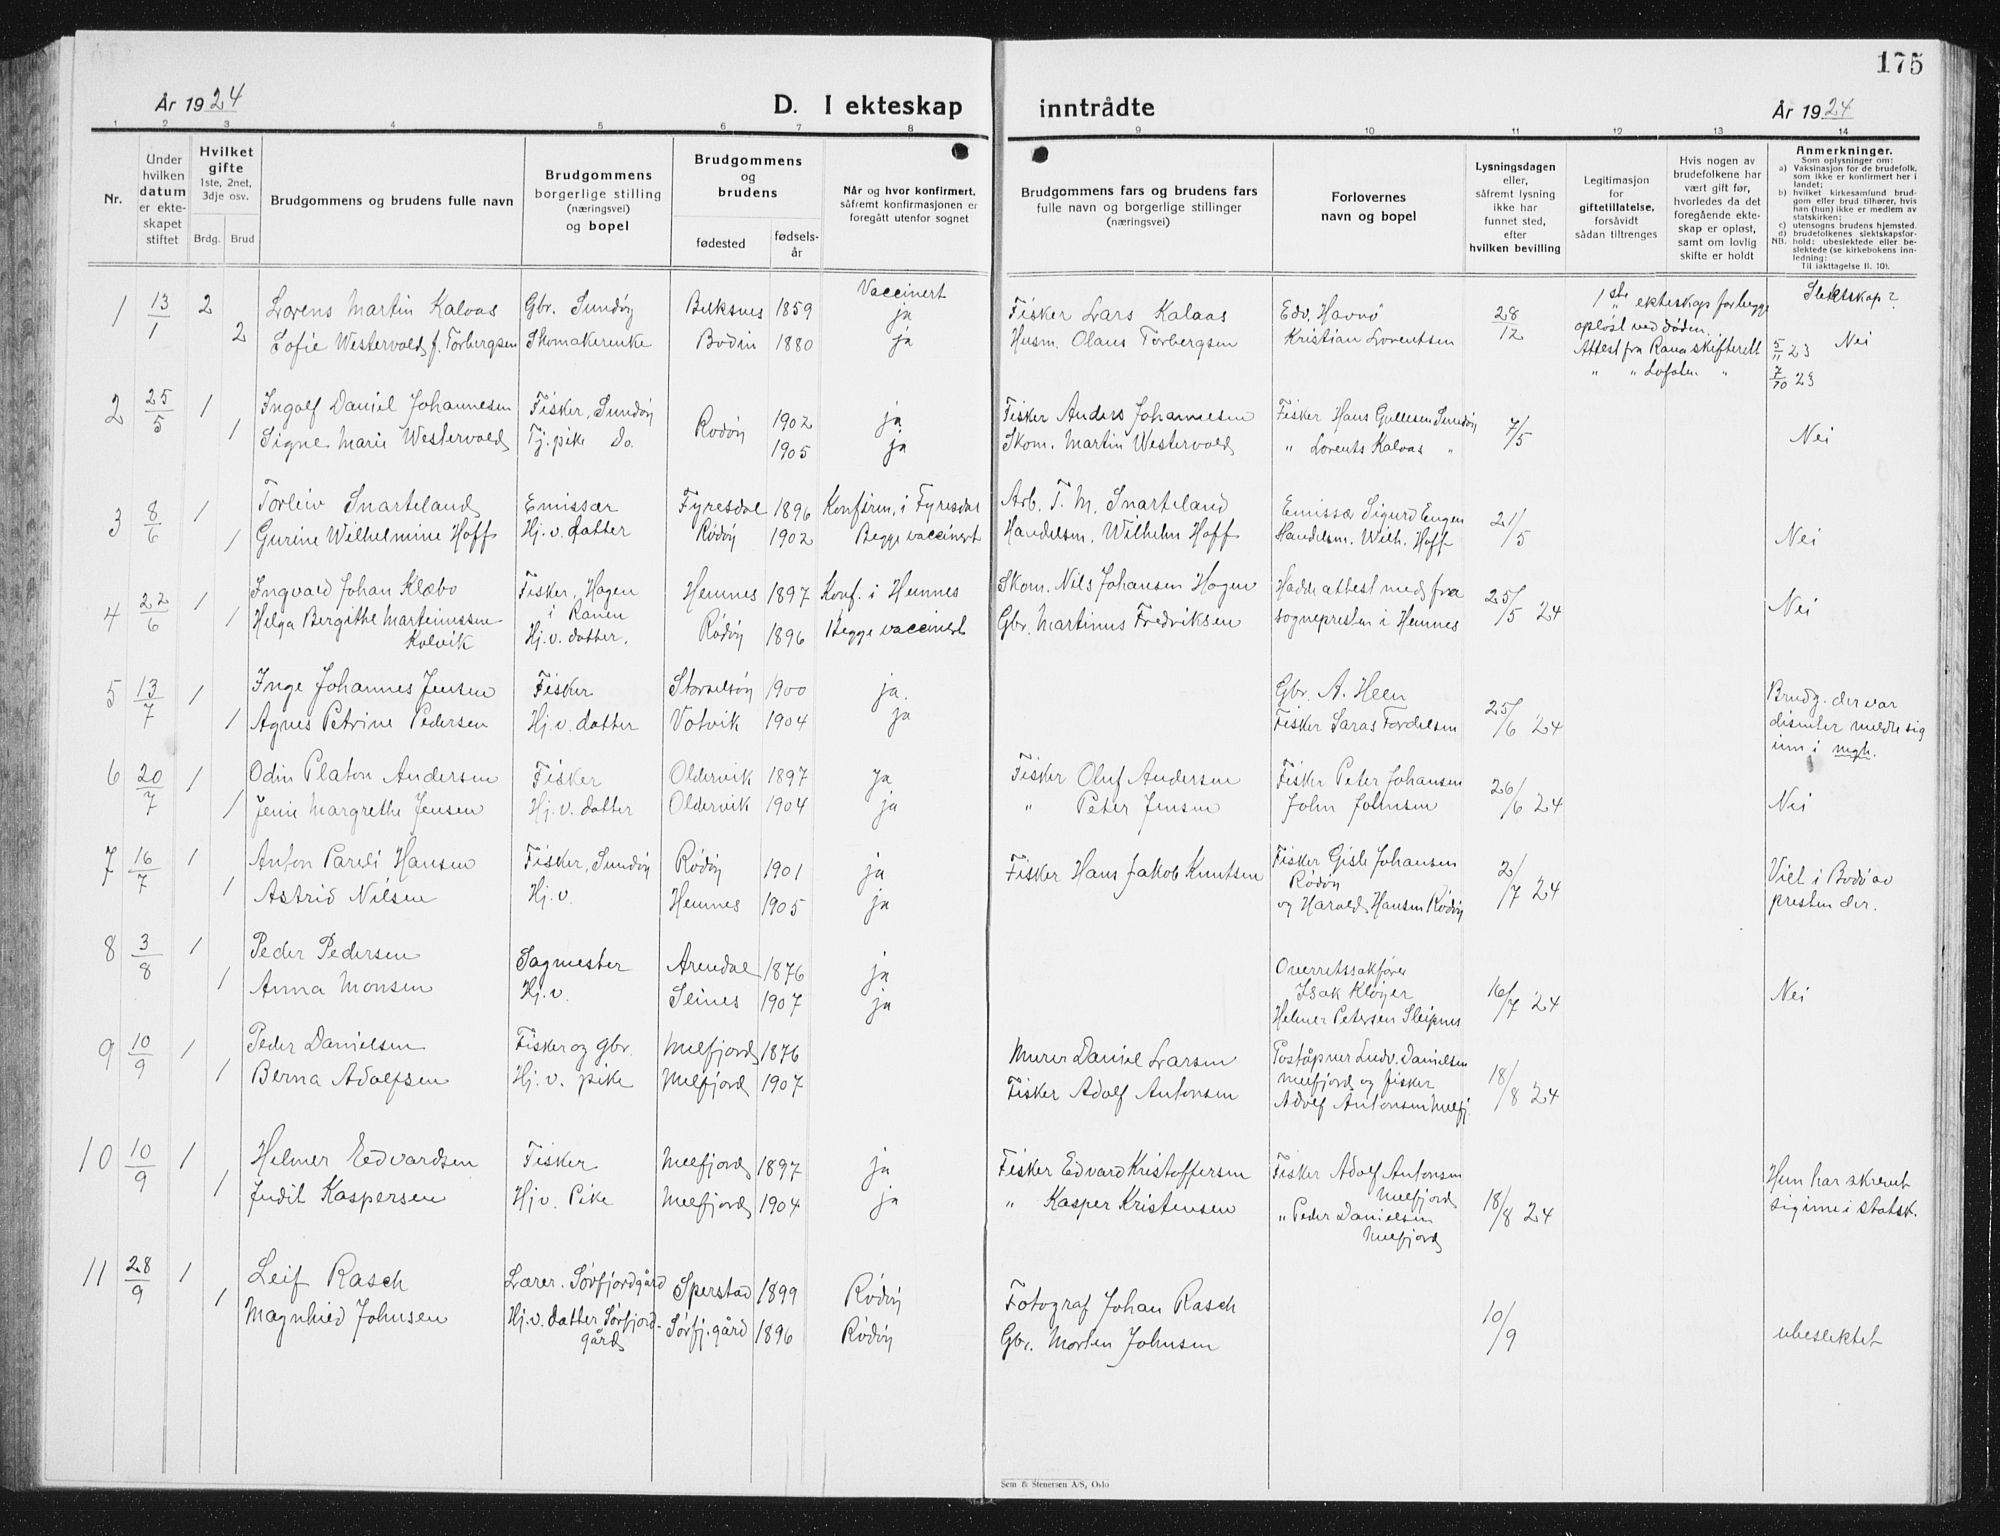 175
År 1924
D. I ekteskap
inntrådte
År 1924
1 2 3 4 5 6 7 8 9 10 11 12 13 14
Nr.
Under hvilken datum er ekteskapet stiftet
Hvilket gifte
1ste, 2net, 3dje osv.
Brdg. Brud
Brudgommens og brudens fulle navn
Brudgommens borgerlige stilling (næringsvei) og bopel
Brudgommens og brudens
fødested
fødselsår
Når og hvor konfirmert, såfremt konfirmasjonen er foregått utenfor sognet
Brudgommens fars og brudens fars fulle navn og borgerlige stillinger (næringsvei)
Forlovernes navn og bopel
Lysningsdagen eller, såfremt lysning ikke har funnet sted, efter hvilken bevilling
Legitimasjon for giftetillatelse, forsåvidt sådan tiltrenges
Hvis nogen av brudefolkene har vært gift før, hvorledes da det foregående ekteskap er opløst, samt om lovlig skifte er holdt
Anmerkninger.
Som oplysninger om:
a) Vaksinasjon for de brudefolk, som ikke er konfirmert her i landet;
b) hvilket kirkesamfund brudgom eller brud tilhører, hvis han (hun) ikke er medlem av statskirken;
c) utensogns brudens hjemsted.
d) brudefolkenes slektskapsforhold: ubeslektede eller beslektede (se kirkebokens innledning:
NB.
Til iakttagelse II. 10).
1 13/1 2 Lorens Martin Kalvaas Gbr. Sundøy 1859 Vaccinert ja Fisker Lars Kalaas Edv. Havnø 28/12 1ste ekteskap for begge Slektskap?
2 Sofie Westervold f. Torbergsen Skomakerenke Bodin 1880 ja Husm. Olaus Torbergsen Kristian Lorentsen opløst ved døden. Nei
Attest fra Rana skifterett 5/11 23
" " Lofoten " 7/10 23
2 25/5 1 Ingolf Daniel Johannesen Fisker, Sundøy Rødøy 1902 ja Fisker Anders Johannesen Fisker Hans Gullesen Sundøy 7/5
1 Signe Marie Westervold Tj. pike Do. 1905 ja Skom. Martin Westervold " Lorents Kalvaas " Nei
3 8/6 1 Torleiv Snarteland Emissær Fyresdal 1896 Konfirm. i Fyresdal Arb. T. M. Snarteland Emissær Sigurd Engen 21/5
1 Gurine Wilhelmine Hoff Hj. v. datter Rødøy 1902 Begge vaccinert Handelsm. Wilhelm Hoff Handelsm. Wilh. Hoff Nei
4 22/6 1 Ingvald Johan Klæbo Fisker, Hagen i Ranen Hemnes 1897 Konf. i Hemnes Skom. Nils Johansen Hagen Hadde attest med fra 25/5 24 Nei
1 Helga Bergithe Martinussen Kolvik Hj. v. datter. Rødøy 1896 Begge vaccinert Gbr. Martinus Fredriksen sognepresten i Hemnes
5 13/7 1 Inge Johannes Jensen Fisker Storselsøy 1900 ja. Gbr. A. Heen 25/6 24 Brudg. der var
1 Agnes Petrine Pedersen Hj. v. datter Votvik 1904 ja Fisker Saras Fordelsen disenter meldte sig
inn i mgh.
6 20/7 1 Odin Platon Andersen Fisker Oldervik 1897 ja Fisker Oluf Andersen Fisker Peter Johansen 26/6 24
1 Jenni Margrethe Jensen Hj. v. datter Oldervik 1904 ja " Peter Jensen John Johnsen Nei
7 16/7 1 Anton Pareli Hansen Fisker, Sundøy Rødøy 1901 ja Fisker Hans Jakob Knutsen Fisker Gisle Johansen Rødøy 2/7 24 Viet i Bodø av
1 Astrid Nilsen Hj. v. Hemnes 1905 ja og Harald Hansen Rødøy presten der.
8 3/8 1 Peder Pedersen Sagmester Arendal 1876 ja Overretssakfører Isak Kløyer 16/7 24
1 Anna Monsen Hj. v. Selnes 1907 ja Helmer Petersen Sleipnes Nei
9 10/9 1 Peder Danielsen Fisker og gbr. Melfjord 1876 Murer Daniel Larsen Poståpner Ludv. Danielsen 18/8 24
1 Berna Adolfsen Hj. v. pike Melfjord 1907 Fisker Adolf Antonsen Melfjord og fisker
Adolf Antonsen Melfj.
10 10/9 1 Helmer Edvardsen Fisker Melfjord 1897 ja Fisker Edvard Kristoffersen Fisker Adolf Antonsen Melfjord 18/8 24 Hun har skrevet
1 Judit Kaspersen Hj. v. Pike Melfjord 1904 ja " Kasper Kristensen " Peder Danielsen Melfjord sig inn i statsk.
11 28/9 1 Leif Rasch Lærer. Sørfjordgård Sperstad 1899 Rødøy Fotograf Johan Rasch 10/9
1 Magnhild Johnsen Hj. v. datter Sørfjordgård Sørfj. gård 1896 Rødøy Gbr. Morten Johnsen ubeslektet
Sem & Stenersen A/S, Oslo